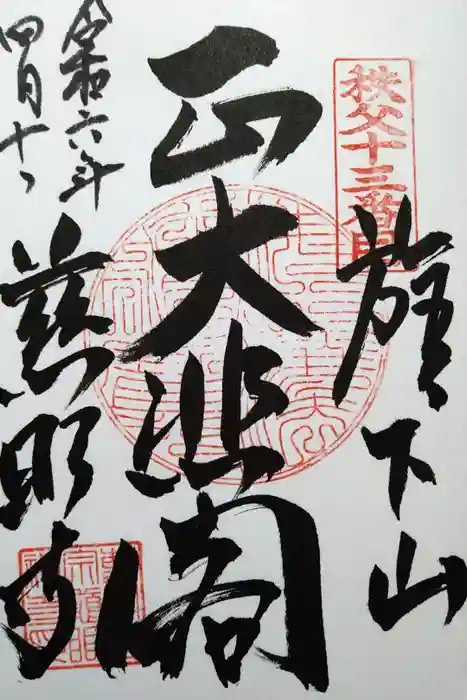 秩父十三番
旗下山
正大悲閣
令和六年
四月十
慈眼寺